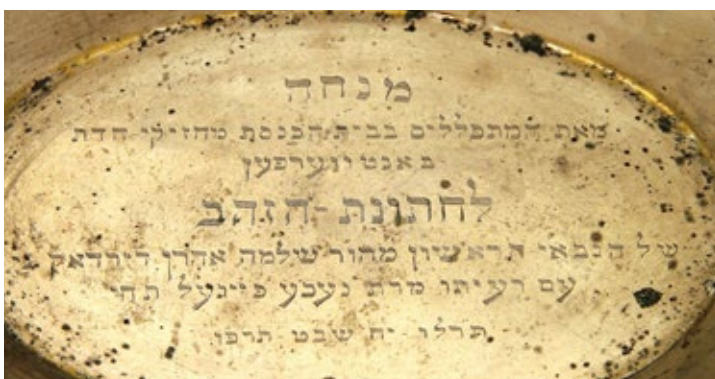 מנחה
מאת המתפללים בבית הכנסת מחזיקי הדת
באנטווערפען
לחתונת-הזהב
של הגבאי הראשון מהור שלמה אהרן
עם רעיתו מרת נעכע פייגעל תחי
תרלו יח שבט תרפו